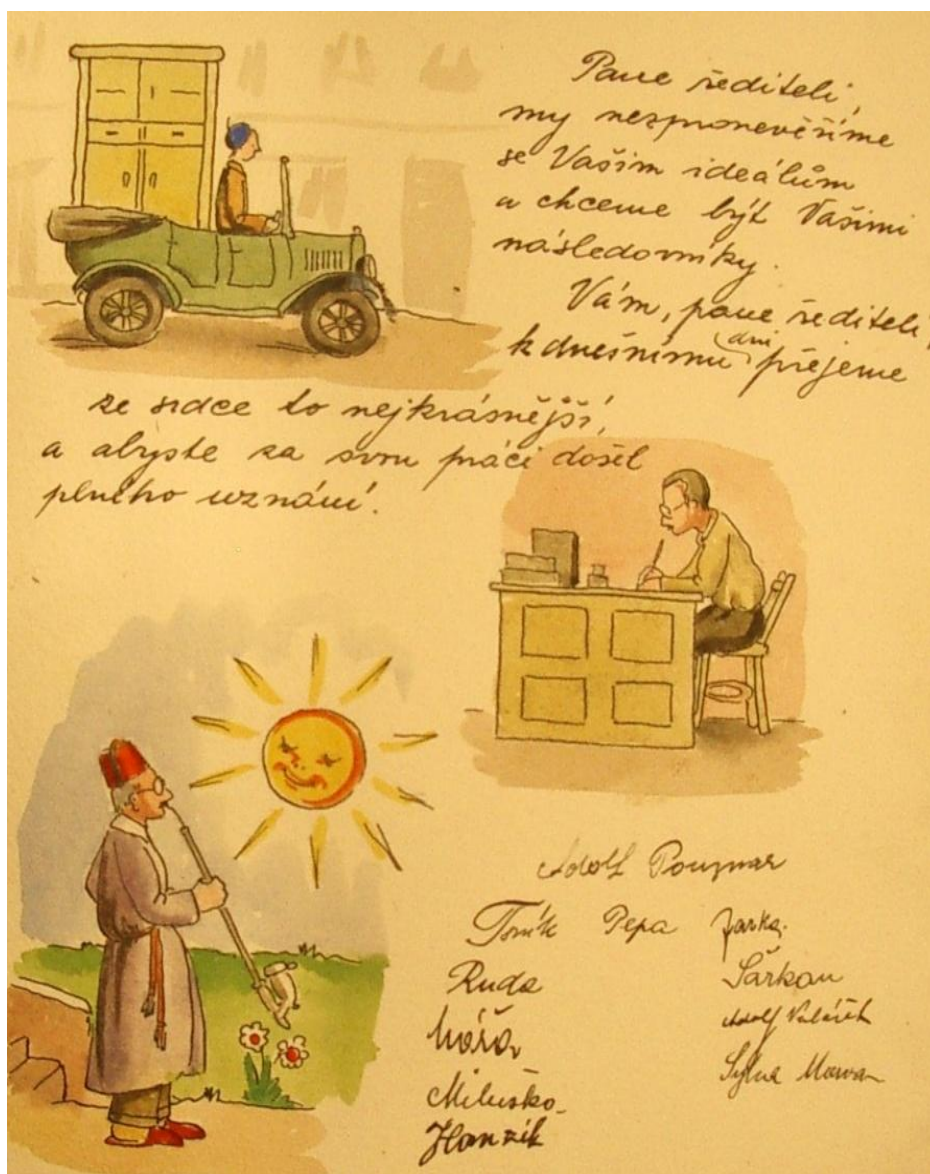 Pane řediteli,
my nezpronevěříme
se Vašim ideálům
a chceme být Vašimi
následovníky.
Vám, pane řediteli,
k dnešnímu dni přejeme
ze srdce to nejkrásnější,
a abyste za svou práci došel
plného uznání.
Adolf
Toník Pepa Jarka.
Ruda Šárkan
Máňa Adolf
Miluška
Hanzík